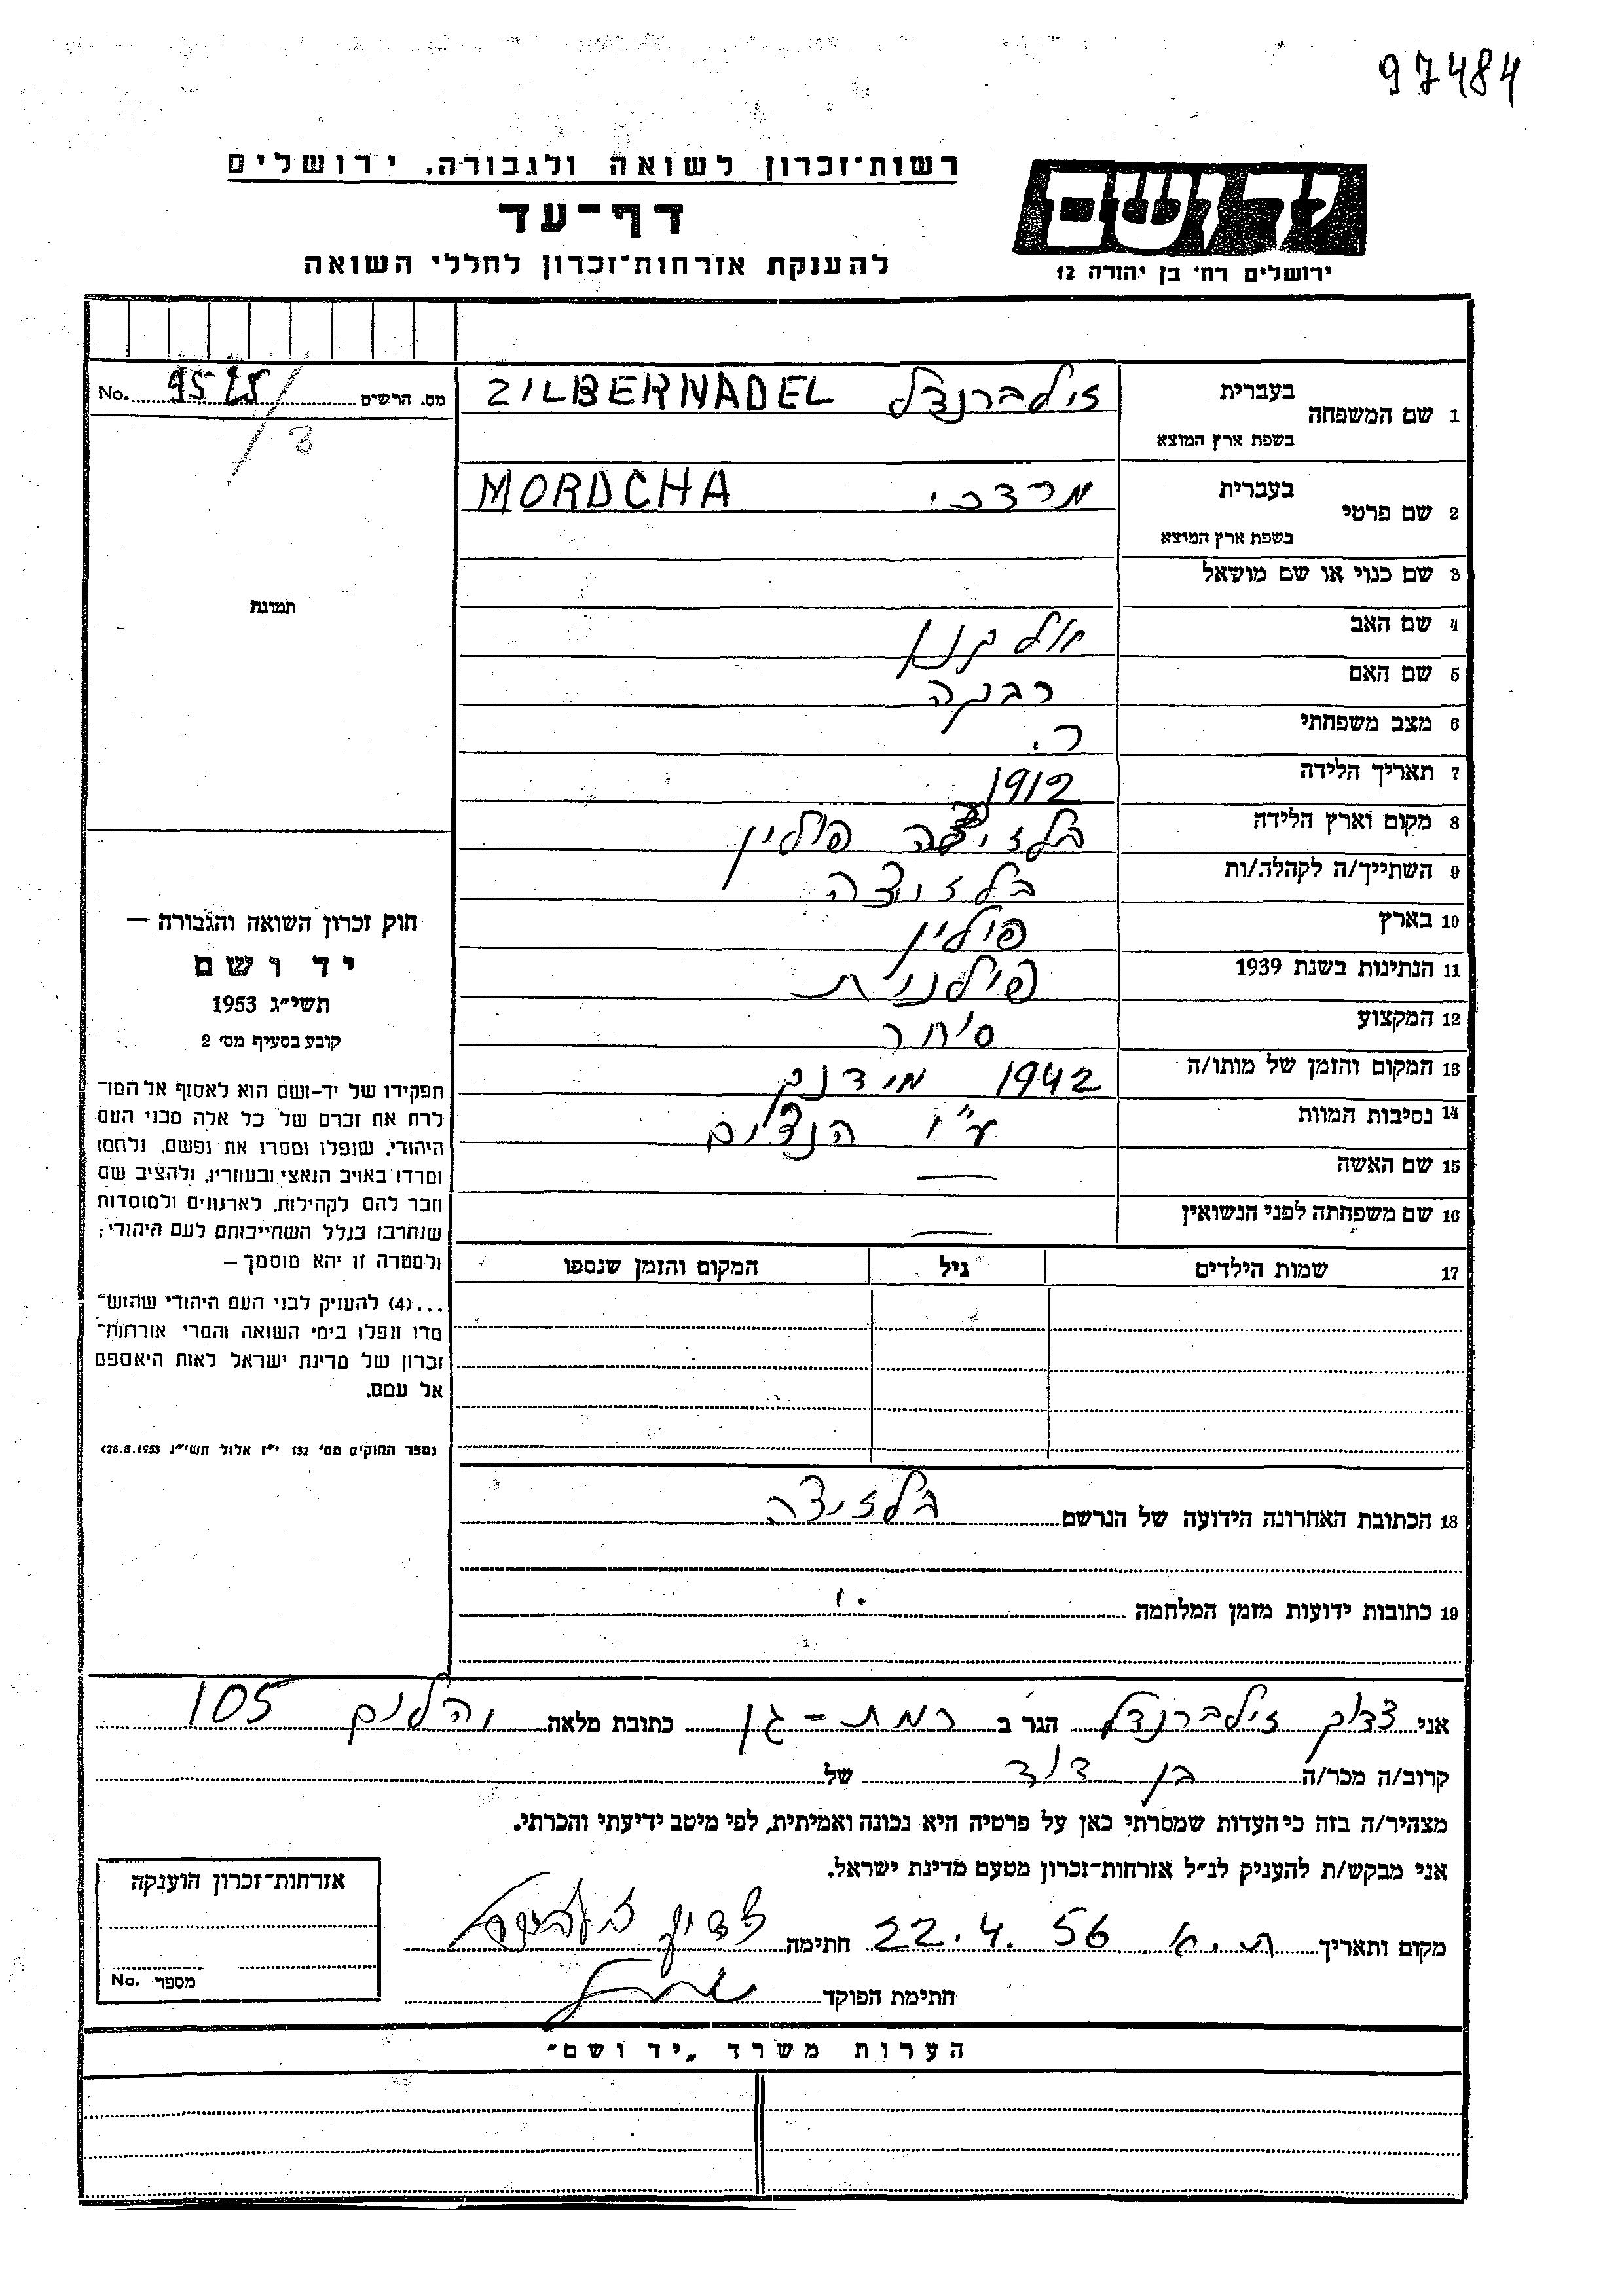 97484
רשות־זכרון לשואה ולגבורה, ירושלים
דף־עד
להענקת אזרחות־זכרון לחללי השואה
יד ושם
ירושלים רח׳ בן יהודה 12
1 שם המשפחה בעברית זילברנדל ZILBERNADEL
בשפת ארץ המוצא
מס. הרשים No.
3
2 שם פרטי בעברית מרדכי MORDCHA
בשפת ארץ המוצא
3 שם כנוי או שם מושאל
תמונה
4 שם האב אלקנא
5 שם האם רבקה
6 מצב משפחתי ר.
7 תאריך הלידה 1912
8 מקום וארץ הלידה פולין
9 השתייך/ה לקהלה/ות
10 בארץ פולין
11 הנתינות בשנת 1939 פולנית
12 המקצוע סוחר
13 המקום והזמן של מותו/ה 1942 מידנק
14 נסיבות המוות ע"י הנצים
15 שם האשה —
16 שם משפחתה לפני הנשואין —
17 שמות הילדים גיל המקום והזמן שנספו
חוק זכרון השואה והגבורה —
יד ושם
תשי״ג 1953
קובע בסעיף מס׳ 2
תפקידו של יד-ושם הוא לאסוף אל המו־
לדת את זכרם של כל אלה מבני העם
היהודי, שנפלו ומסרו את נפשם, נלחמו
ומרדו באויב הנאצי ובעוזריו, ולהציב שם
וזכר להם לקהילות, לארגונים ולמוסדות
שנחרבו בגלל השתייכותם לעם היהודי;
ולמטרה זו יהא מוסמך —
...(4) להעניק לבני העם היהודי שהוש־
מדו ונפלו בימי השואה והמרי אזרחות־
זכרון של מדינת ישראל לאות היאספם
אל עמם.
(ספר החוקים מס׳ 132 י״ז אלול תשי״ג 28.8.1953)
18 הכתובת האחרונה הידועה של הנרשם
19 כתובות ידועות מזמן המלחמה
אני צדוק זילברנדל הגר ב רמת - גן כתובת מלאה 105
קרוב/ה מכר/ה בן דוד של
מצהיר/ה בזה כי העדות שמסרתי כאן על פרטיה היא נכונה ואמיתית, לפי מיטב ידיעתי והכרתי.
אני מבקש/ת להעניק לנ״ל אזרחות־זכרון מטעם מדינת ישראל.
מקום ותאריך ת.א. 22.4.56 חתימה
חתימת הפוקד
אזרחות־זכרון הוענקה
מספר No.
הערות משרד „יד ושם״